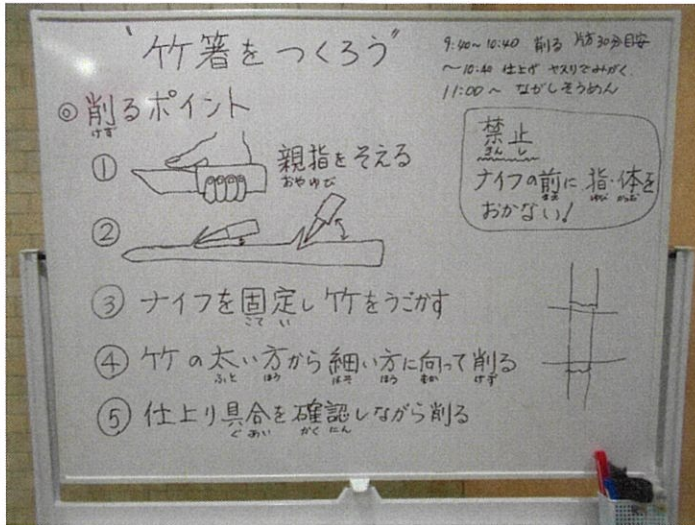 "竹箸をつくろう"
9:40～10:40 削る 片方30分目安
～10:40 仕上げ ヤスリでみがく
11:00～ ながしそうめん
◎削るポイント
けず
① 親指をそえる
おやゆび
禁止
きんし
ナイフの前に指・体を
まえ ゆび からだ
おかない!
②
③ ナイフを固定し竹をうごかす
こてい
④ 竹の太い方から細い方に向って削る
ふと ほう ほそ ほう むか けず
⑤ 仕上り具合を確認しながら削る
ぐあい かくにん